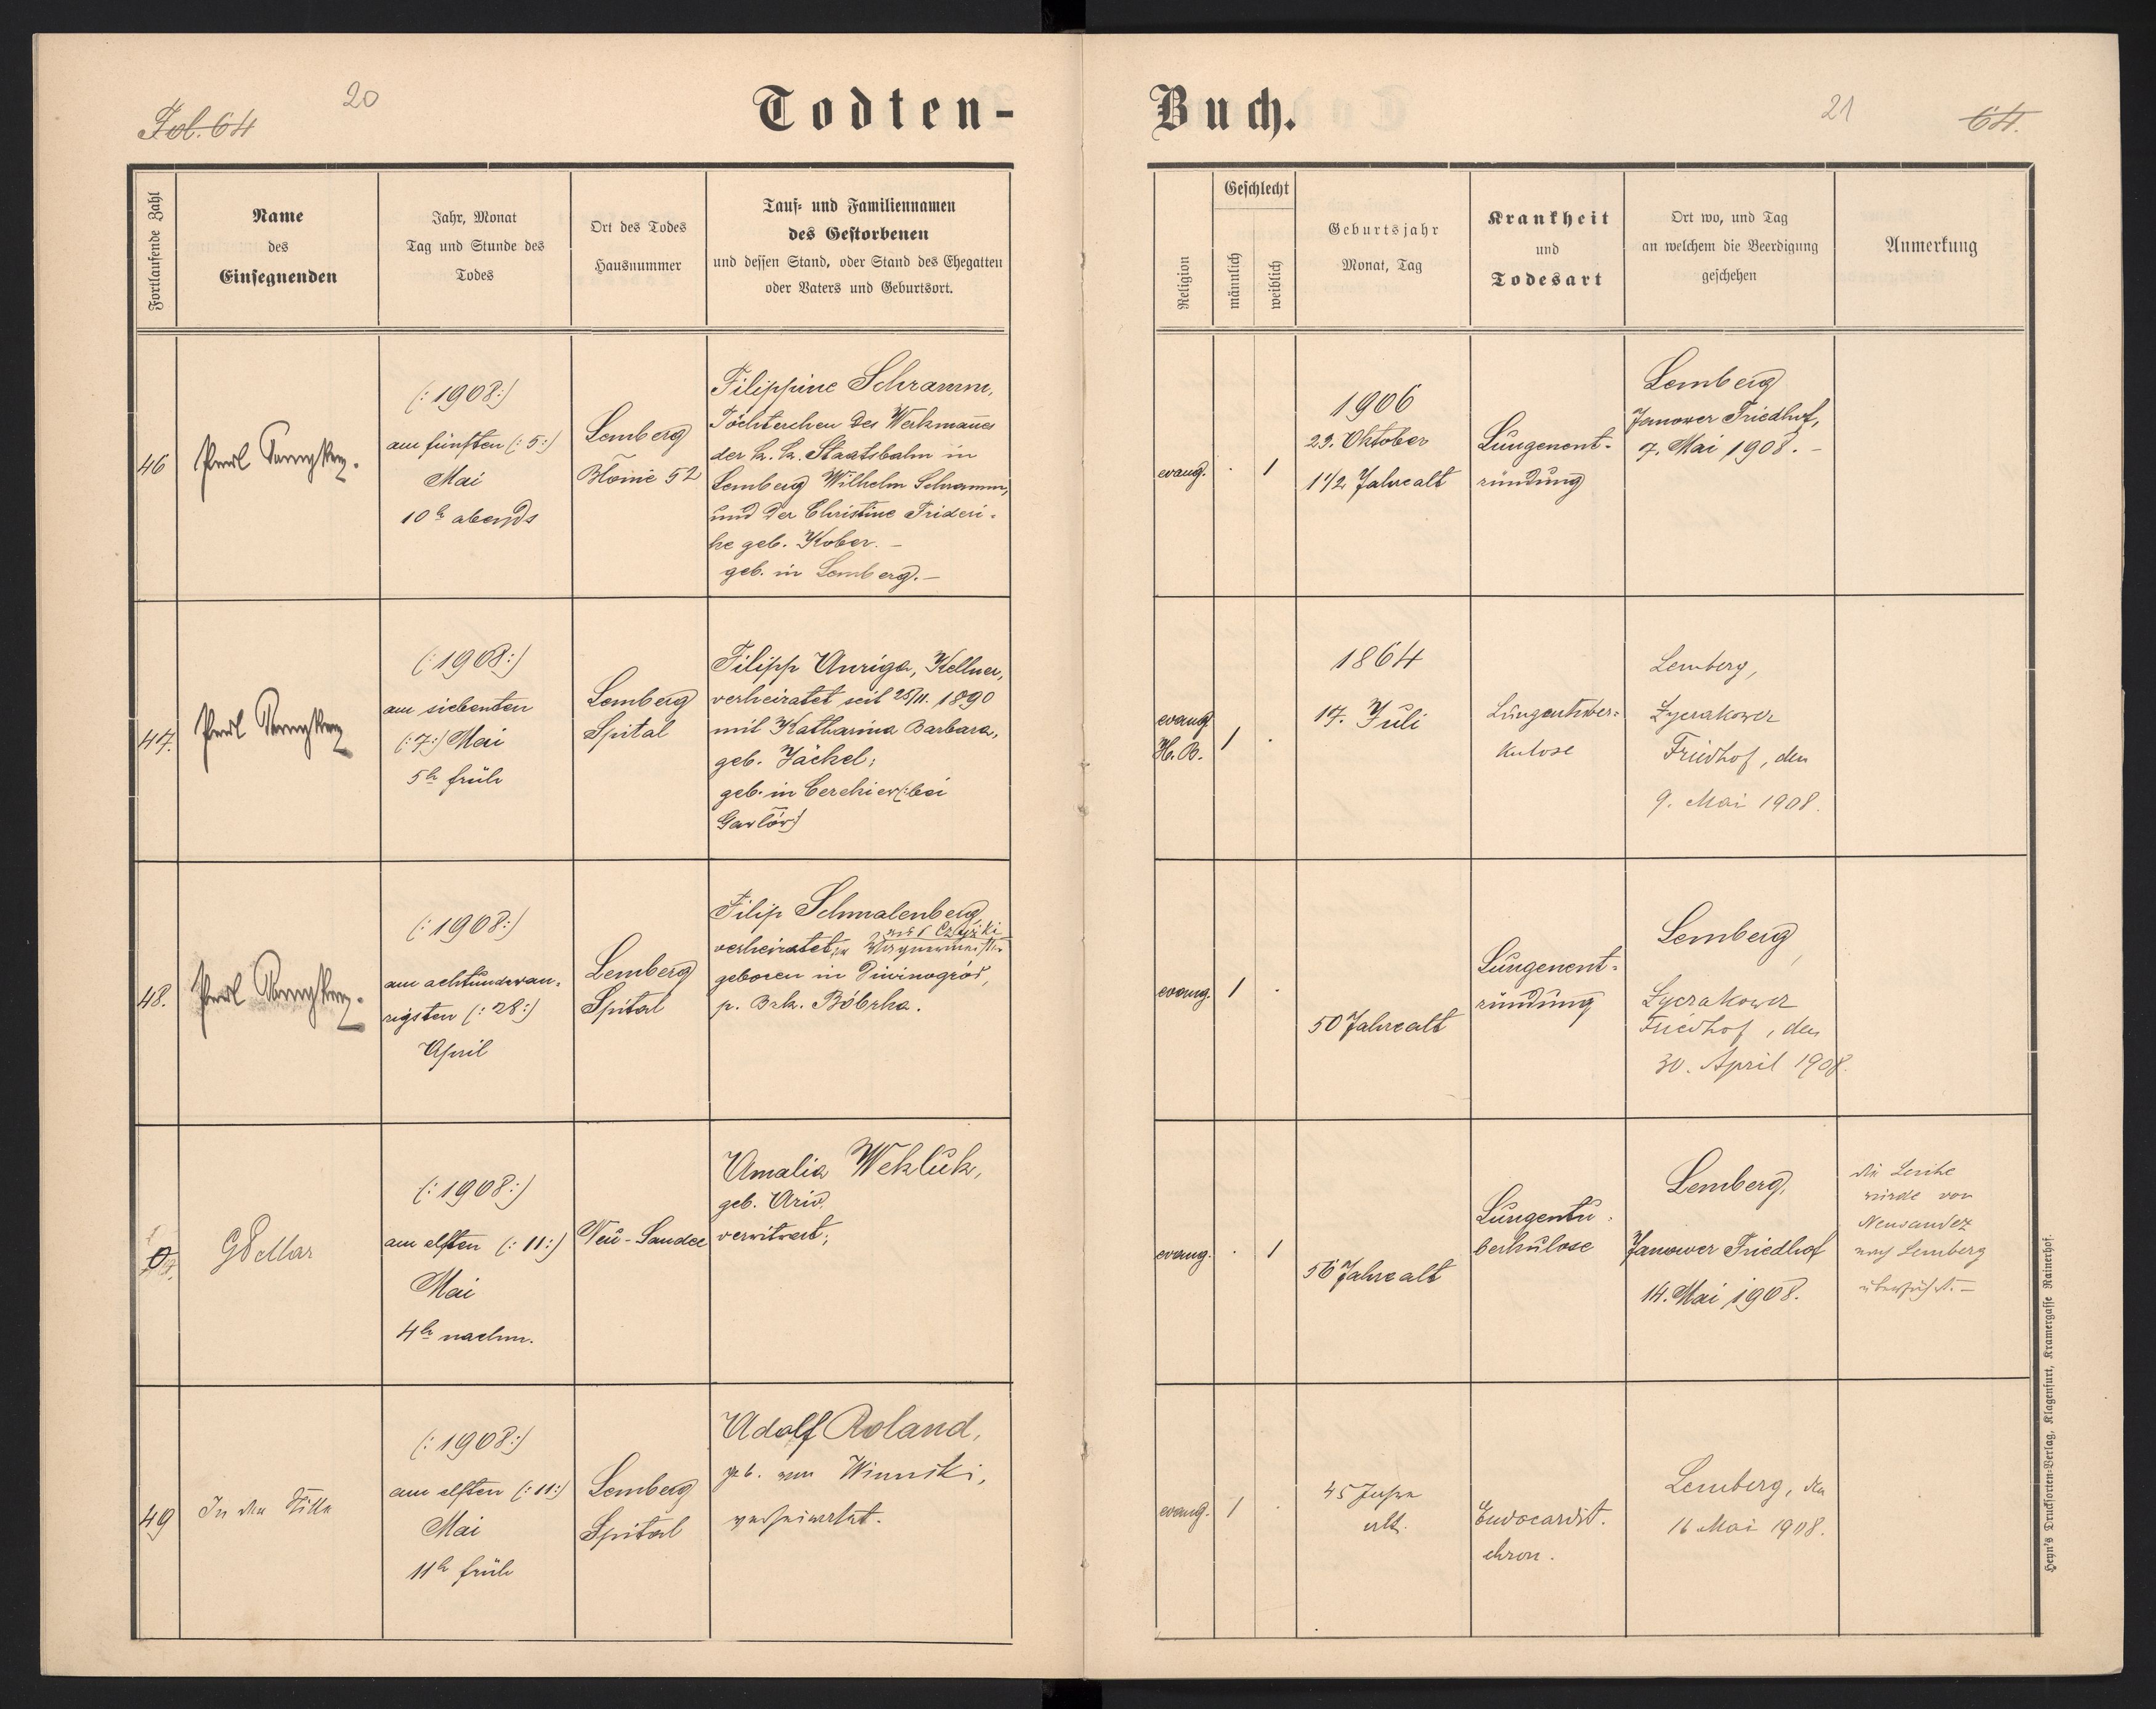 Fol. 64
20
Todten-
Fortlaufende Zahl
Name
des
Einsegnenden
Jahr, Monat
Tag und Stunde des
Todes
Ort des Todes
Hausnummer
Tauf- und Familiennamen
des Gestorbenen
und dessen Stand, oder Stand des Ehegatten
oder Vaters und Geburtsort.
46
(: 1908:)
am fünften (: 5:)
Mai
10h abends
Lemberg
Błonie 52
Filippine Schramm,
Töchterchen des Werkmannes
der k. k. Staatsbahn in
Lemberg Wilhelm Schramm,
und der Christine Frideri-
ke geb. Kober. –
geb. in Lemberg. –
47.
(: 1908:)
am siebenten
(: 7:) Mai
5h früh
Lemberg
Spital
Filipp Unriga, Kellner,
verheiratet seit 25/11. 1890
mit Katharina Barbara,
geb. Jäckel;
geb. in (: bei
48.
(: 1908:)
am achtundzwan-
zigsten (: 28:)
April
Lemberg
Spital
Filip Schmalenberg
verheiratet,
geboren in Dźwinogród,
p. Bzk. Bóbrka.
(: 1908:)
am elften (: 11:)
Mai
4h nachm.
Neu-Sandec
Amalia Wekluk,
geb.
verwitwet;
49
In der Stille
(: 1908:)
am elften (: 11:)
Mai
11h früh
Lemberg
Spital
Adolf Roland,
geb. von Winniki,
verheiratet.
Buch.
21
64.
Religion
Geschlecht
männlich
weiblich
Geburtsjahr
Monat, Tag
Krankheit
und
Todesart
Ort wo, und Tag
an welchem die Beerdigung
geschehen
Anmerkung
evang.
.
1
1906
29. Oktober
1 1/2 Jahre alt
Lungenent-
zündung
Lemberg
Janower Friedhof,
7. Mai 1908. –
evang
H. B.
1
.
1864
17. Juli
Lungentuber-
kulose
Lemberg,
Łyczakower
Friedhof, den
9. Mai 1908.
evang.
1
.
50 Jahre alt
Lungenent-
zündung
Lemberg,
Łyczakower
Friedhof, den
30. April 1908.
evang.
.
1
56 Jahre alt
Lungentu-
berkulose
Lemberg,
Janower Friedhof
14. Mai 1908.
die Leiche
wurde von
Neusandez
nach Lemberg
überführt. –
evang.
1
.
45 Jahre
alt.
Endocardit.
chron.
Lemberg, den
16 Mai 1908.
Heyn's Drucksorten-Verlag, Klagenfurt, Kramergasse Rainerhof.